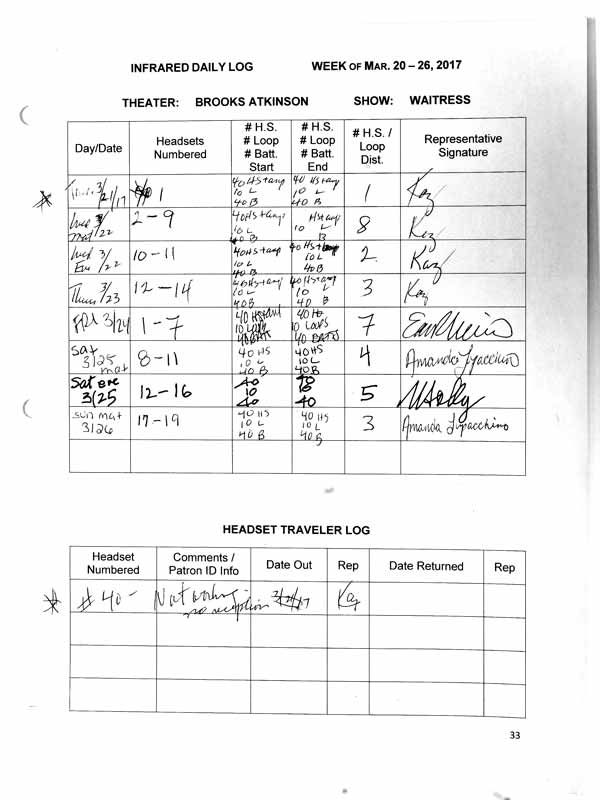 INFRARED DAILY LOG WEEK OF MAR. 20 – 26, 2017
THEATER: BROOKS ATKINSON SHOW: WAITRESS
Day/Date Headsets Numbered # H.S. # Loop # Batt. Start # H.S. # Loop # Batt. End # H.S. / Loop Dist. Representative Signature
3/21/17 1 40 HS 10 L 40 B 40 HS 10 L 40 B 1 Kaz
Wed 3/22 mat 2-9 40HS 10 L 40 B HS 10 L B 8 Kaz
Wed 3/22 Eve 10-11 40HS 10 L 40 B 40 HS 10 L 40 B 2 Kaz
Thurs 3/23 12-14 40HS 10 L 40B 40 HS 10 L 40 B 3 Kaz
FRI 3/24 1-7 40 10 40 40 HS 10 LOOPS 40 BATTS 7
Sat 3/25 mat 8-11 40 HS 10 L 40 B 40 HS 10 L 40 B 4 Amanda
Sat eve 3/25 12-16 40 10 40 40 10 40 5
sun mat 3/26 17-19 40 HS 10 L 40 B 40 HS 10 L 40 B 3 Amanda
HEADSET TRAVELER LOG
Headset Numbered Comments / Patron ID Info Date Out Rep Date Returned Rep
# 40 - Not working no reception 3/21/17 Kaz
33